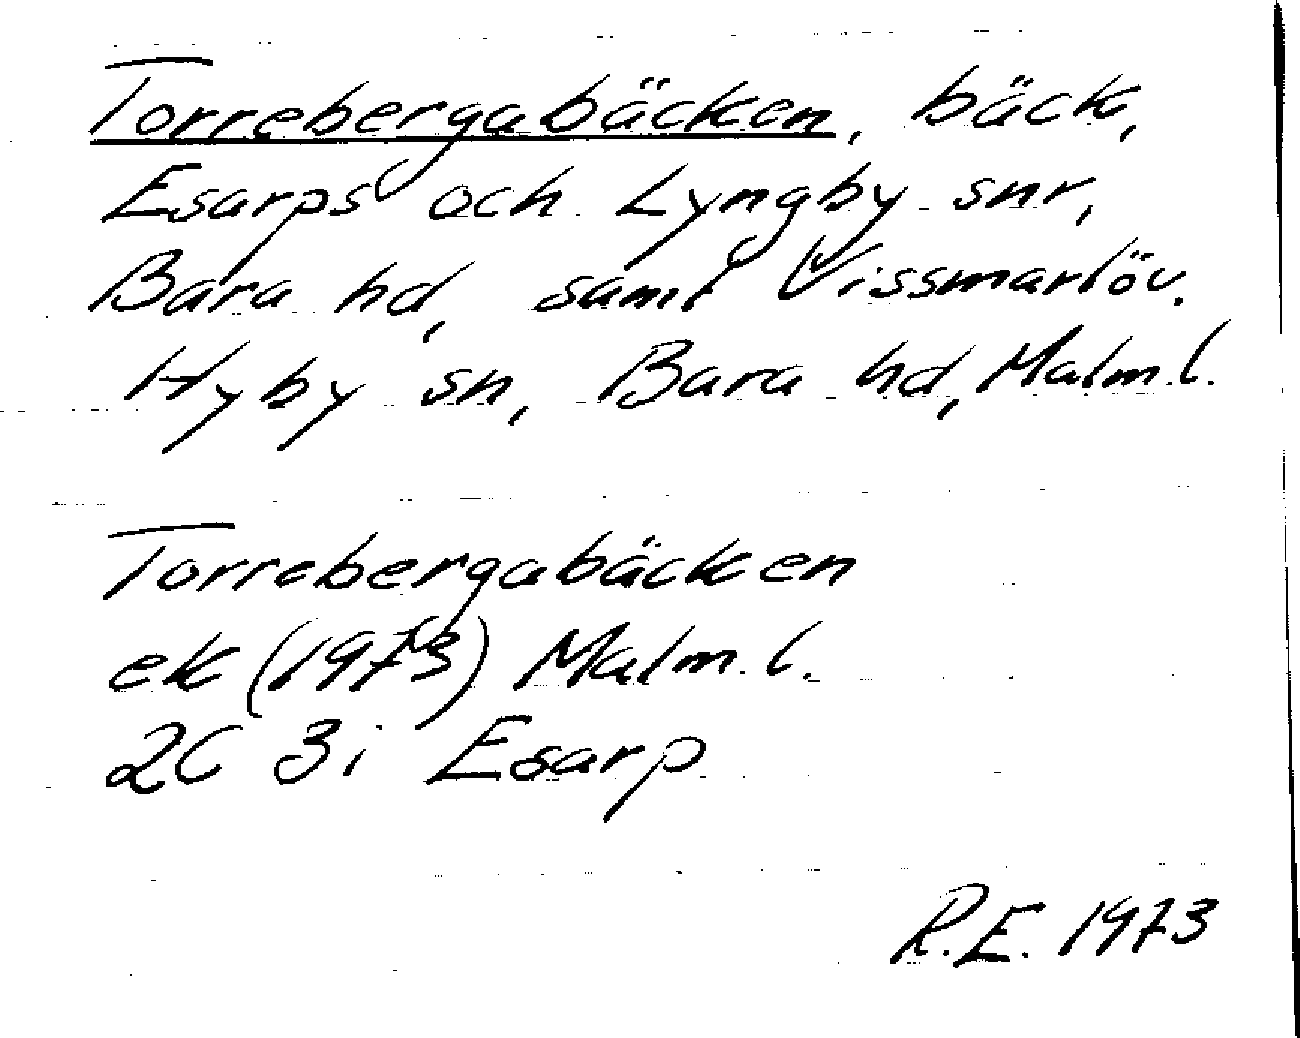 Torrebergabäcken, bäck,
Esarps och Lyngby snr,
Bara hd, samt Vissmarlöv.
Hyby sn, Bara hd, Malm.l.
Torrebergabäcken
ek (1973) Malm.l.
2C 3i Esarp
R.E. 1973